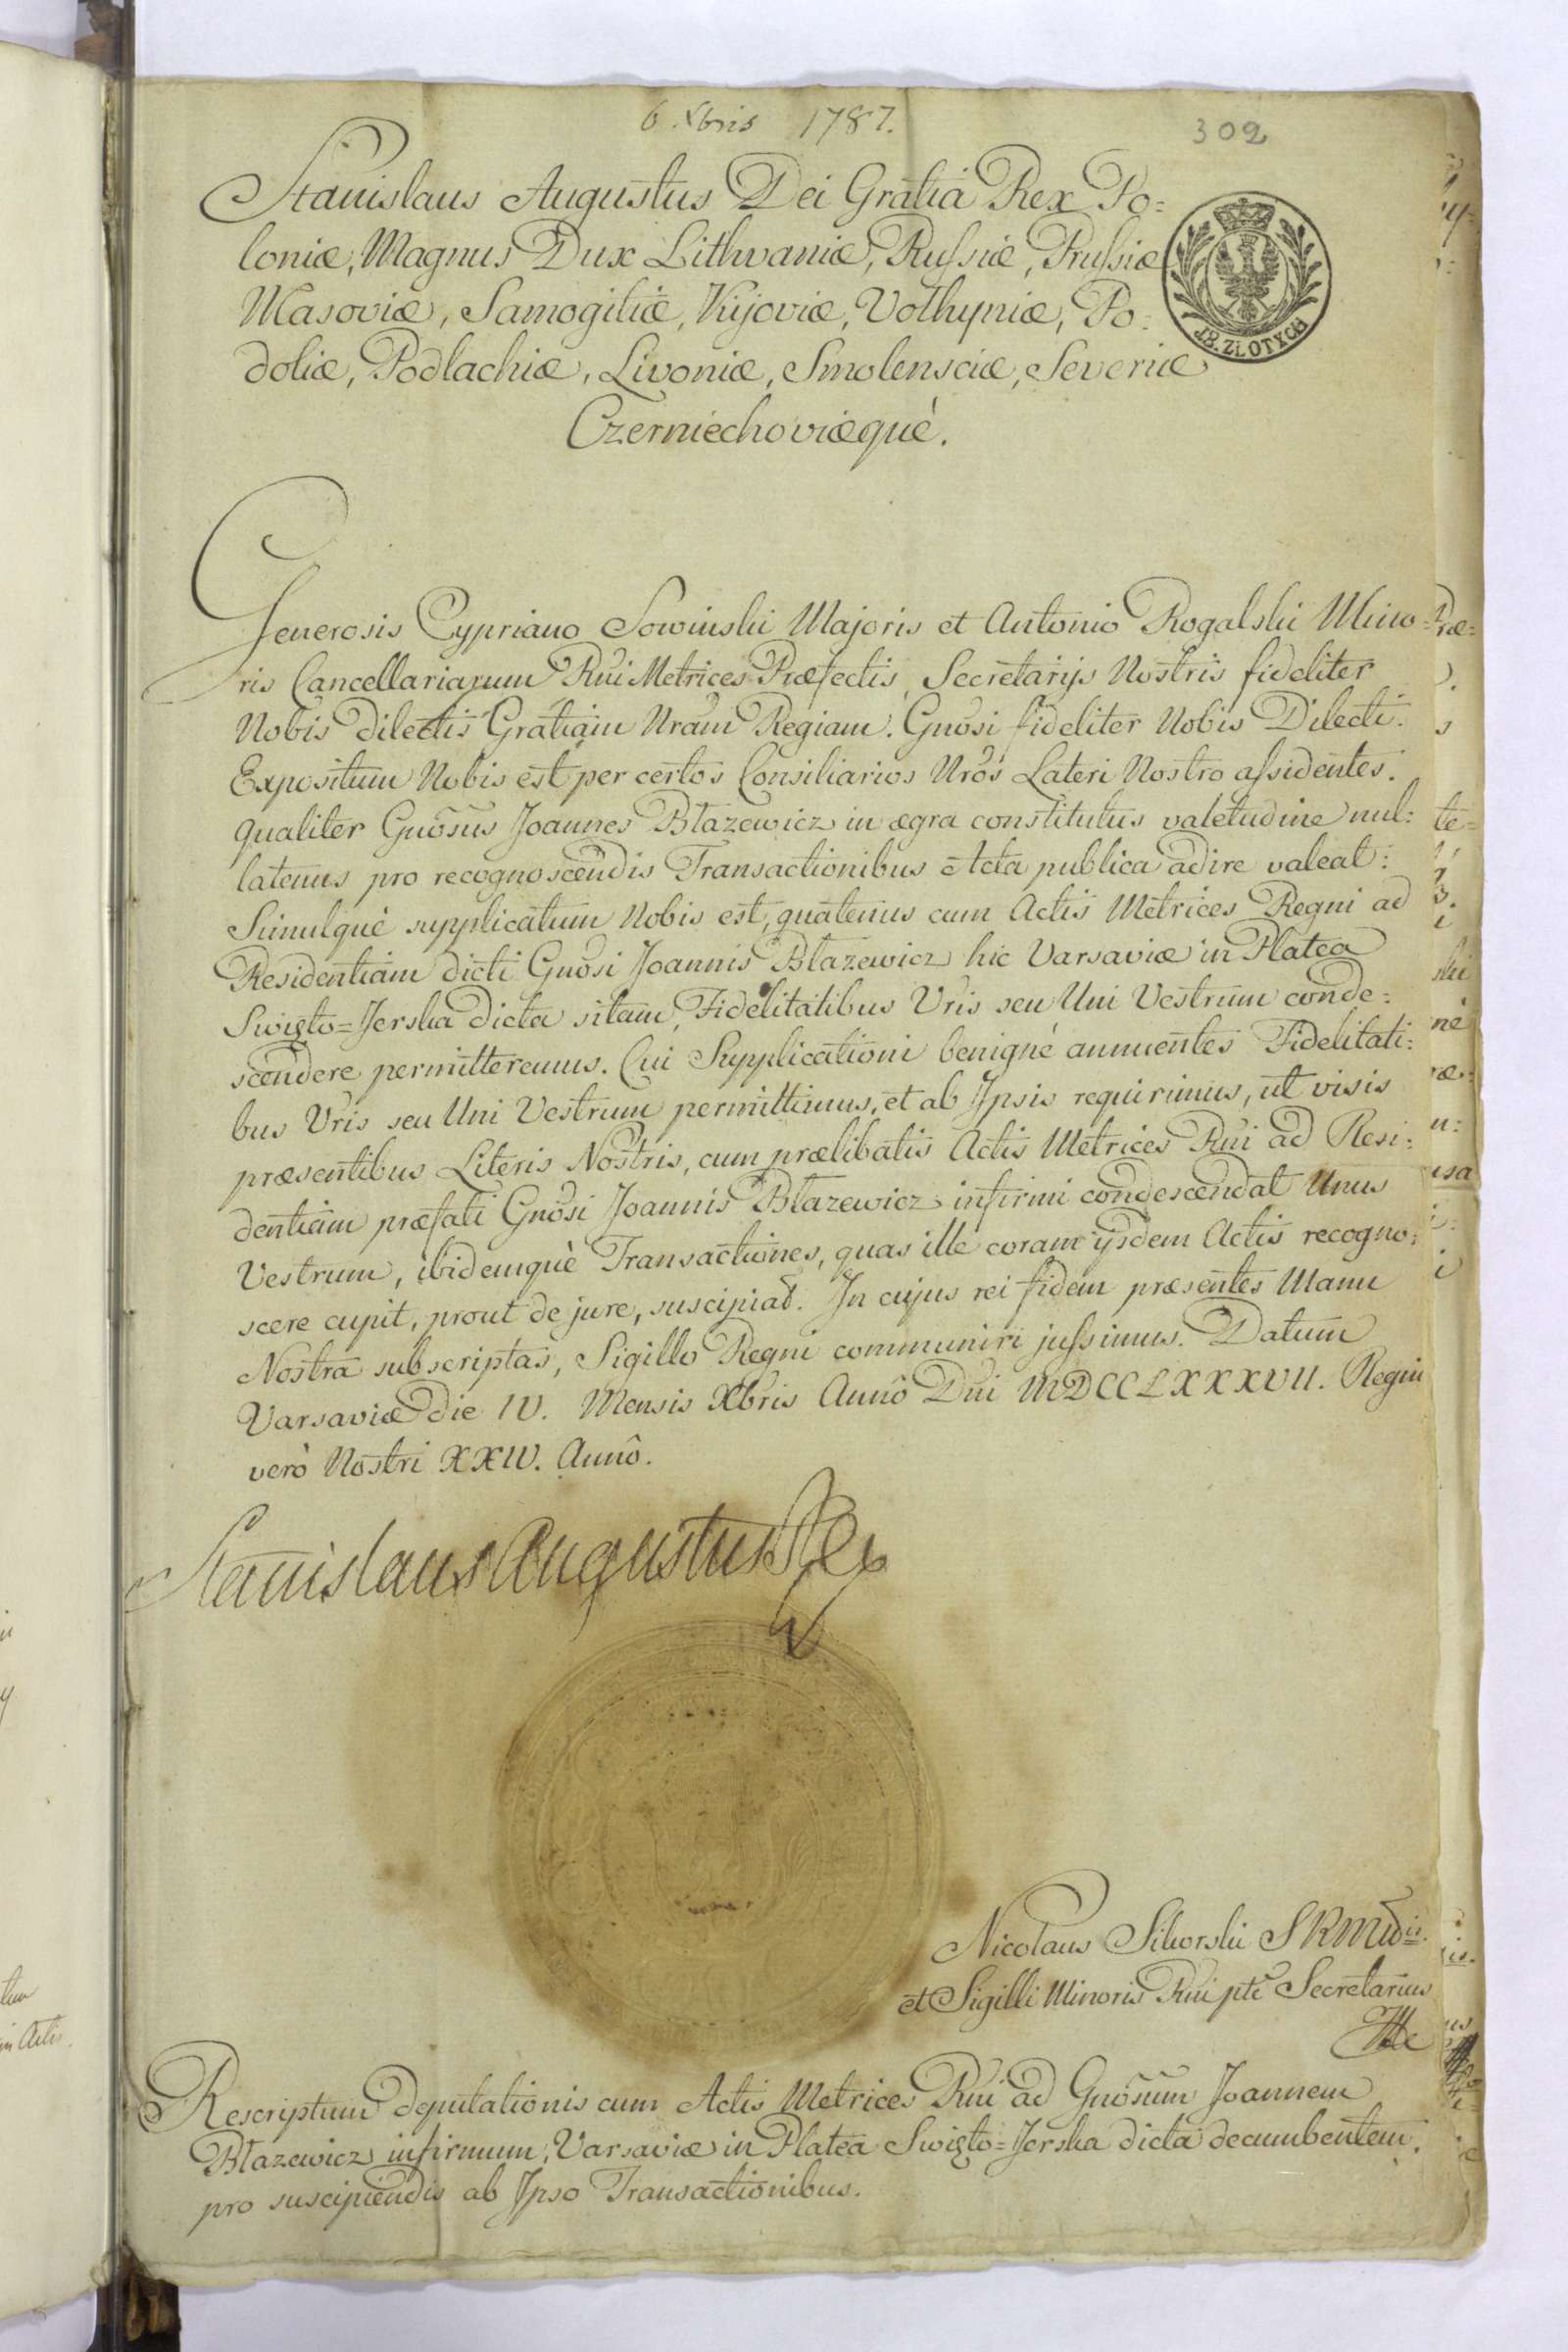 6 Xbris 1787.
302
Stanislaus Augustus Dei Gratiâ Rex Po=
loniæ, Magnus Dux Lithvaniæ, Russiæ, Prussiæ
Masoviæ, Samogitiæ, Kijoviæ, Volhyniæ, Po=
doliæ, Podlachiæ, Livoniæ, Smolensciæ, Severiæ
Czerniechoviæquè.
18. ZŁOTYCH
Generosis Cypriano Sowinski Majoris et Antonio Rogalski Mino=
ris Cancellariarum Rni Metrices Præfectis, Secretarijs Nostris fideliter
Nobis dilectis Gratiam Nram Regiam. Gnosi fideliter Nobis Dilecti.
Expositum Nobis est per certos Consiliarios Nros Lateri Nostro assidentes.
qualiter Gnosus Joannes Błazewicz in ægra constitutus valetudine nul=
latenus pro recognoscendis Transactionibus Acta publica adire valeat:
Simulquè supplicatum Nobis est, quatenus cum Actis Metrices Regni ad
Residentiam dicti Gnosi Joannis Błazewicz hic Varsaviæ in Platea
Swięto=Jerska dicta sitam, Fidelitatibus Vris seu Uni Vestrum conde=
scendere permitteremus. Cui Supplicationi benignè annuentes Fidelitati=
bus Vris seu Uni Vestrum permittimus, et ab Ipsis requirimus, ut visis
præsentibus Literis Nostris, cum prælibatis Actis Metrices Rni ad Resi=
dentiam præfati Gnosi Joannis Błazewicz infirmi condescendat Unus
Vestrum, ibidemquè Transactiones, quas ille coram ijsdem Actis recogno=
scere cupit, prout de jure, suscipiat. In cujus rei fidem præsentes Manu
Nostra subscriptas, Sigillo Regni communiri jussimus. Datum
Varsaviæ die IV. Mensis Xbris Annô Dni MDCCLXXXVII. Regni
verò Nostri XXIV. Annô.
Stanislaus Augustus Rex
Nicolaus Sikorski SRMtis
et Sigilli Minoris Rni ptr Secretarius
Rescriptum deputationis cum Actis Metrices Rni ad Gnosum Joannem
Błazewicz infirmum, Varsaviæ in Platea Swięto=Jerska dicta decumbentem,
pro suscipiendis ab Ipso Transactionibus.